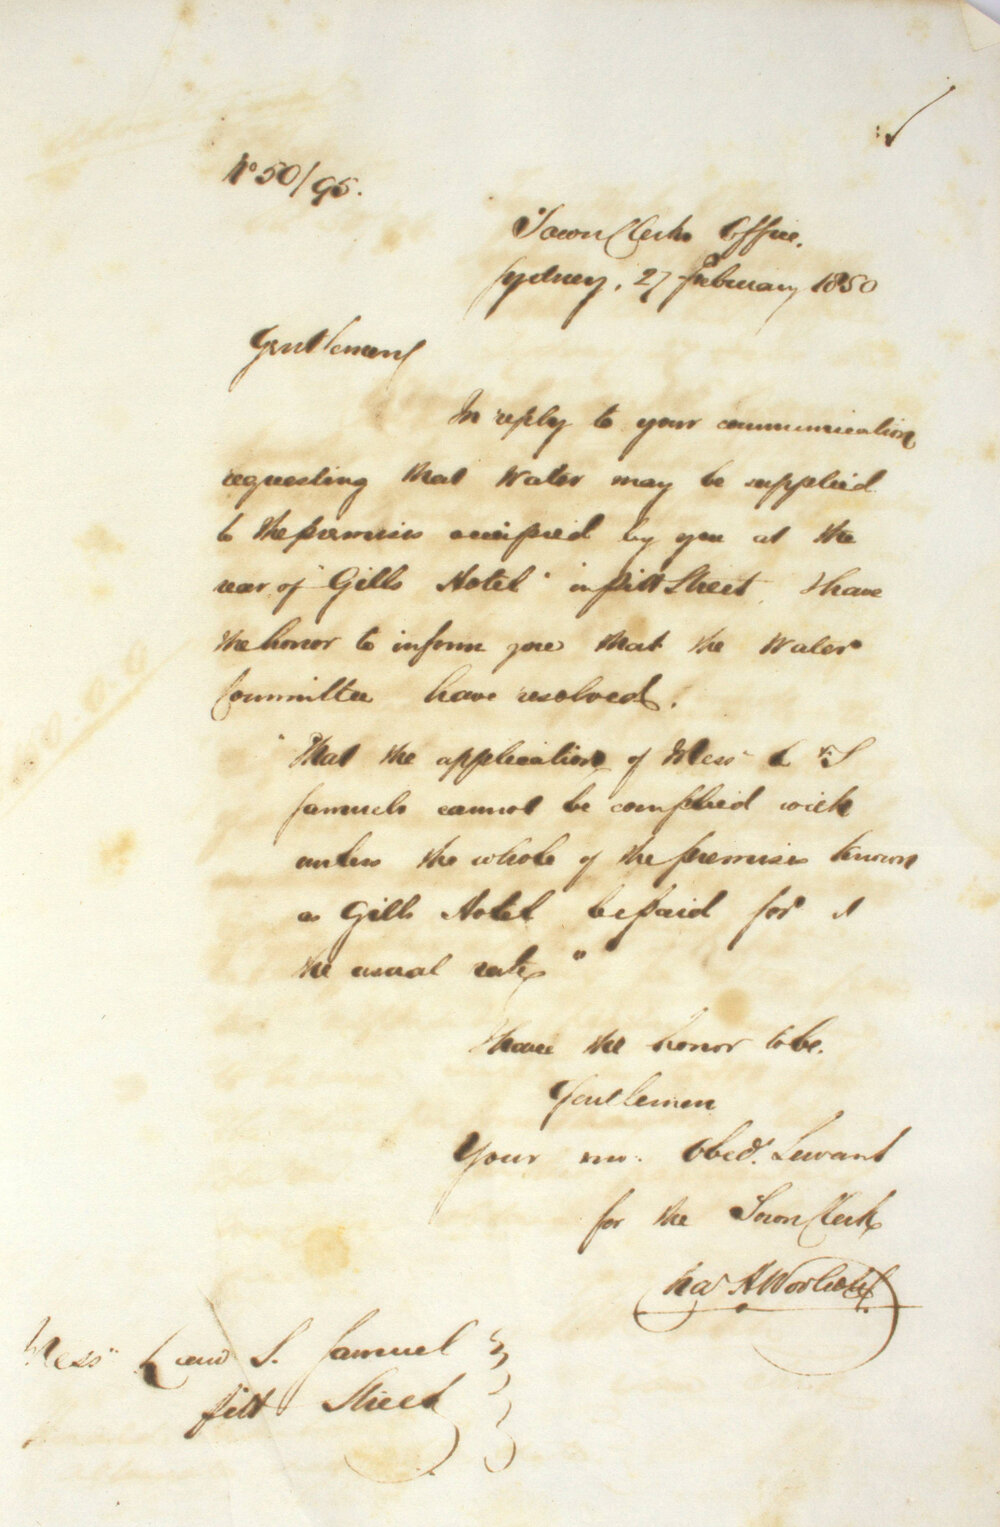 No 50/95.
Town Clerks Office.
Sydney, 27 February 1850
Gentlemen
In reply to your communication
requesting that Water may be supplied
to the premises occupied by you at the
rear of "Gills Hotel" in Pitt Street, I have
the honor to inform you that the Water
Committee have resolved.
"That the application of Messrs L & S
Samuels cannot be complied with
unless the whole of the premises known
as Gills Hotel be paid for at
the usual rates"
I have the honor to be.
Gentlemen
Your mo. Obedt. Servant
for the Town Clerk
Chas H Woolcott
Messrs L and S. Samuel
Pitt Street